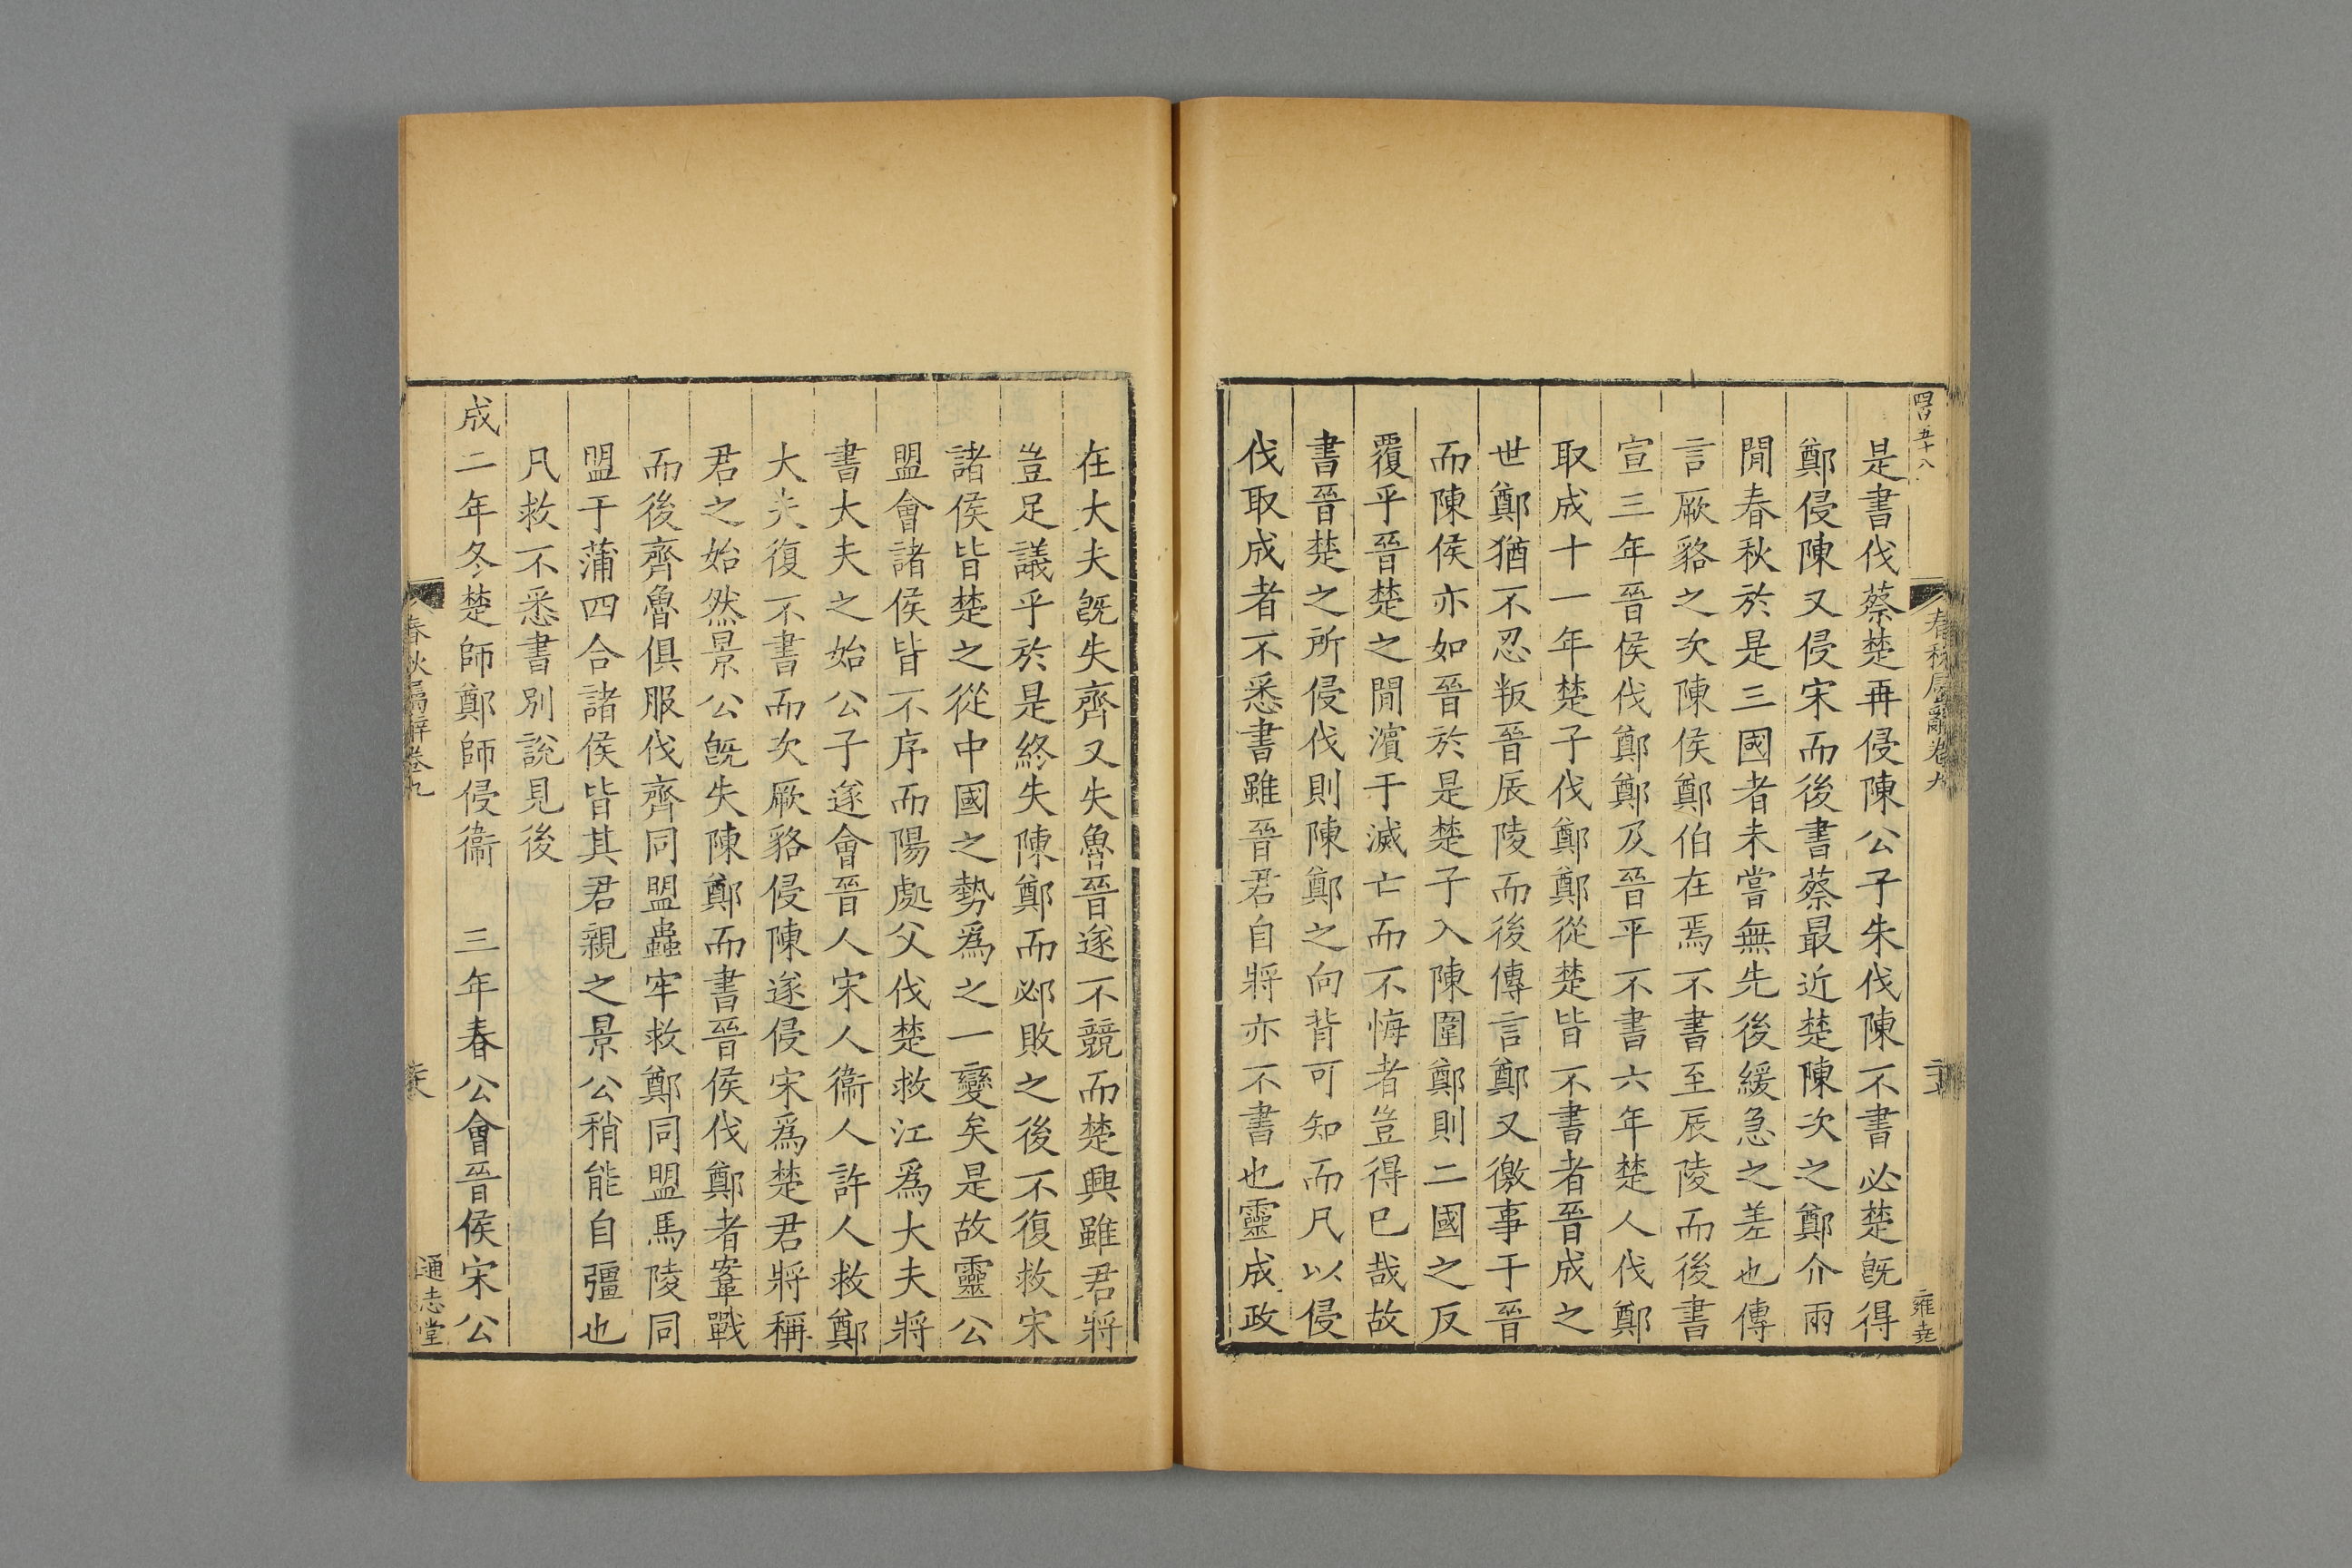 是書伐蔡楚再侵陳公子朱伐陳不書必楚旣得
鄭侵陳又侵宋而後書蔡最近楚陳次之鄭介兩
閒春秋於是三國者未嘗無先後緩急之差也傳
言厥貉之次陳侯鄭伯在焉不書至辰陵而後書
宣三年晉侯伐鄭鄭及晉平不書六年楚人伐鄭
取成十一年楚子伐鄭鄭從楚皆不書者晉成之
世鄭猶不忍叛晉辰陵而後傳言鄭又徼事于晉
而陳侯亦如晉於是楚子入陳圍鄭則二國之反
覆乎晉楚之閒濵于滅亡而不悔者豈得巳哉故
書晉楚之所侵伐則陳鄭之向背可知而凡以侵
伐取成者不悉書雖晉君自將亦不書也靈成政
在大夫旣失齊又失魯晉遂不競而楚興雖君將
豈足議乎於是終失陳鄭而邲敗之後不復救宋
諸侯皆楚之從中國之勢爲之一變矣是故靈公
盟會諸侯皆不序而陽處父伐楚救江爲大夫將
書大夫之始公子遂會晉人宋人衞人許人救鄭
大夫復不書而次厥貉侵陳遂侵宋爲楚君將稱
君之始然景公旣失陳鄭而書晉侯伐鄭者鞌戰
而後齊魯俱服伐齊同盟蟲牢救鄭同盟馬陵同
盟于蒲四合諸侯皆其君親之景公稍能自彊也
凡救不悉書別說見後
成二年冬楚師鄭師侵衞　三年春公會晉侯宋公
春秋屬辭卷九
通志堂
四百五十八
春秋屬辭卷九
雍堯